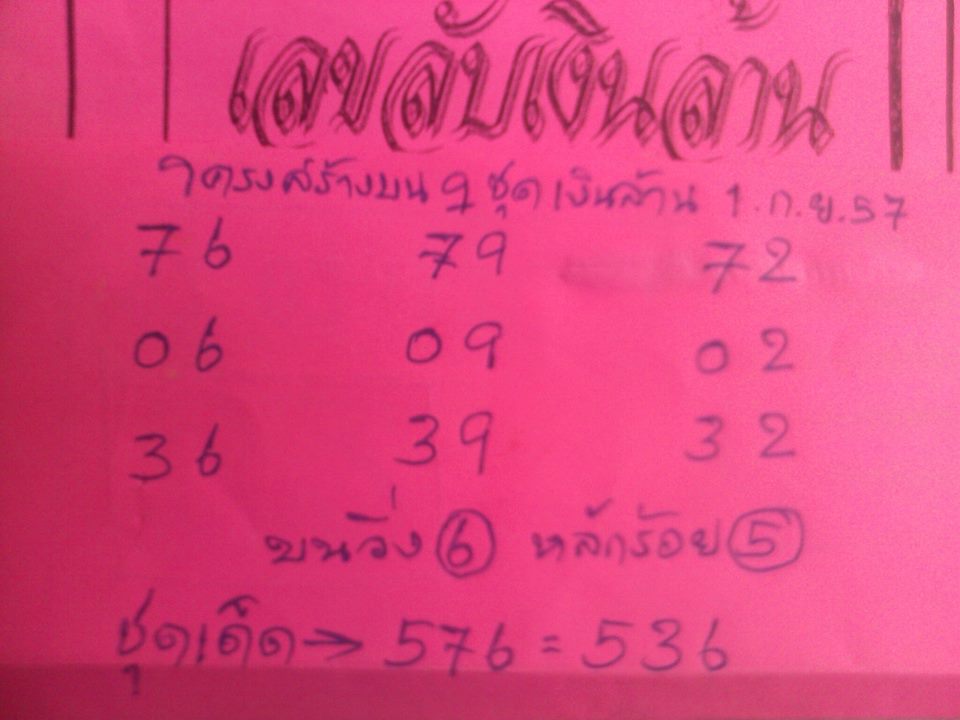 เลขลับเงินล้าน
โครงสร้างบน 9 ชุด เงินล้าน 1.ก.ย.57
76 79 72
06 09 02
36 39 32
บนวิ่ง 6 หลักร้อย 5
ชุดเด็ด → 576 = 536